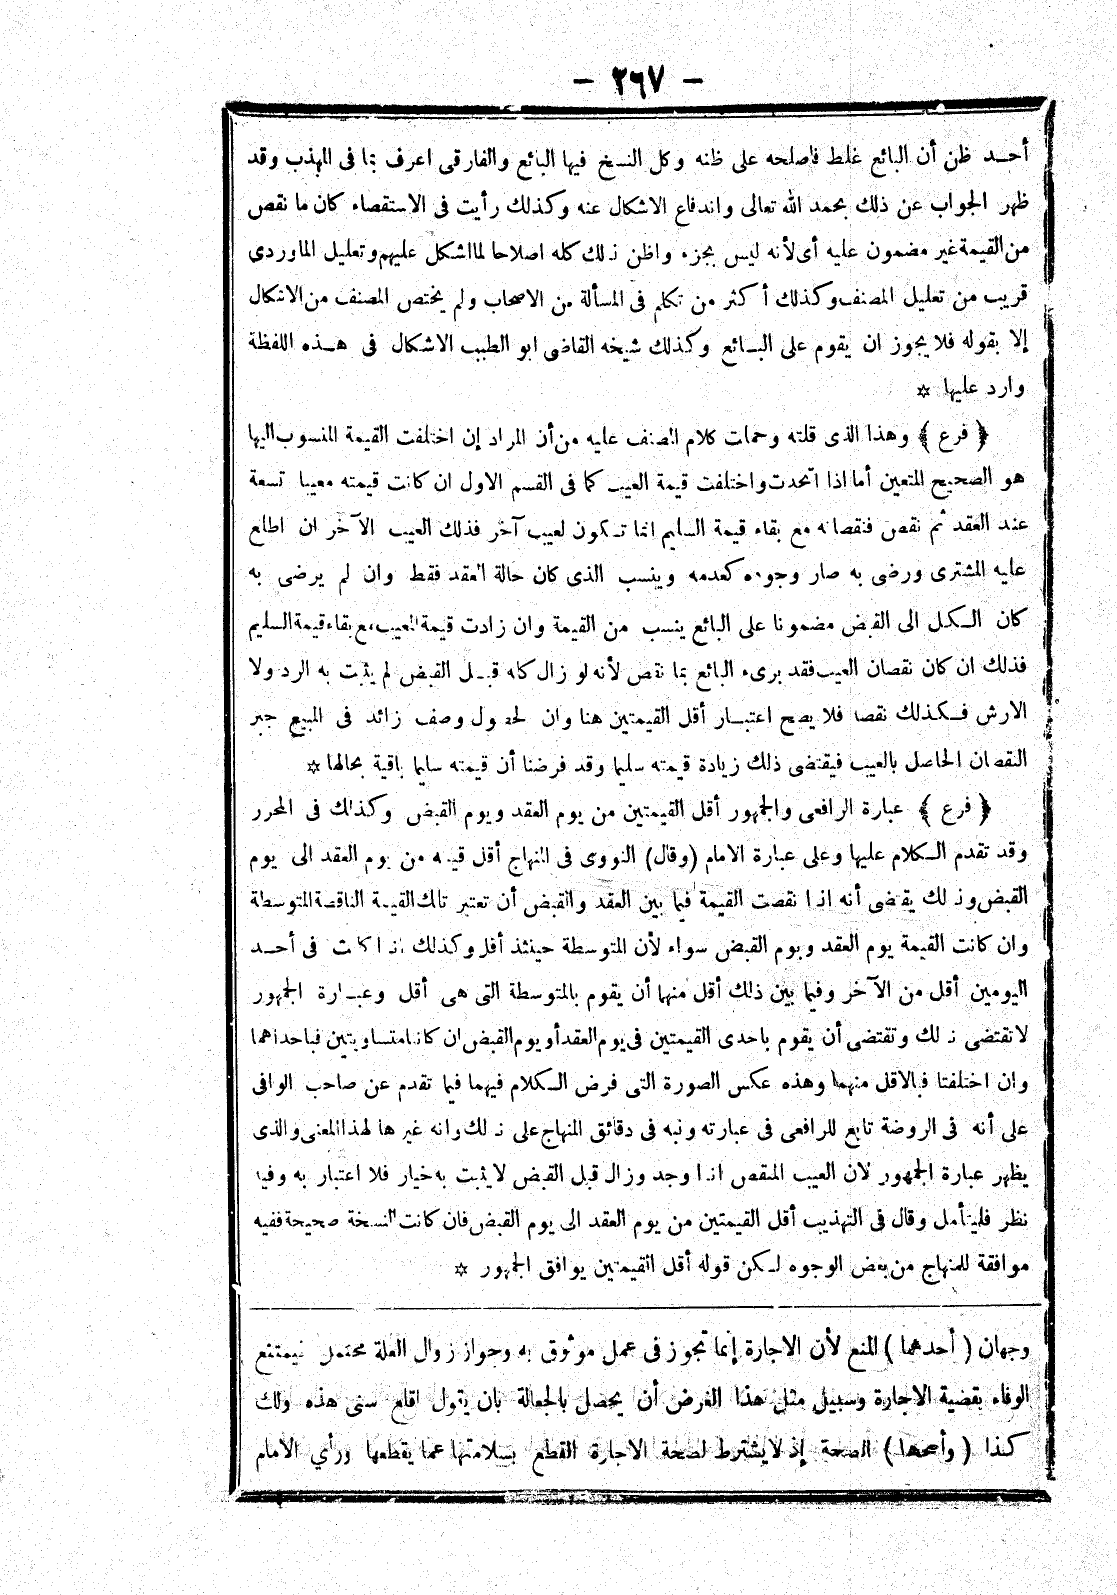 — ٢٦٧ —
أحـد ظن أن البائع غلط فأصلحه على ظنه وكل النسخ فيها البائع والفارقى اعرف بما فى المهذب وقد
ظهر الجواب عن ذلك بحمد الله تعالى واندفاع الاشكال عنه وكذلك رأيت فى الاستقصاء كان ما نقص
من القيمة غير مضمون عليه أى لأنه ليس بجزء واظن ذلك كله اصلاحا لما اشكل عليهم وتعليل الماوردى
قريب من تعليل المصنف وكذلك أكثر من تكلم فى المسألة من الاصحاب ولم يختص المصنف من الاشكال
إلا بقوله فلا يجوز ان يقوم على البـائع وكذلك شيخه القاضى ابو الطيب الاشكال فى هـذه اللفظة
وارد عليها ✡
﴿ فرع ﴾ وهذا الذى قلته وحملت كلام المصنف عليه من أن المراد إن اختلفت القيمة المنسوب اليها
هو الصحيح المتعين أما اذا اتحدت واختلفت قيمة العيب كما فى القسم الاول ان كانت قيمته معيبا تسعة
عند العقد ثم نقص فنقصانه مع بقاء قيمة السليم انما تـكون لعيب آخر فذلك العيب الآخر ان اطلع
عليه المشترى ورضى به صار وجوده كعدمه وينسب الذى كان حالة العقد فقط وان لم يرضى به
كان الـكل الى القبض مضمونا على البائع ينسب من القيمة وان زادت قيمة المعيب مع بقاء قيمة السليم
فذلك ان كان نقصان العيب فقد برىء البائع بما نقص لأنه لو زال كله قبـل القبض لم يثبت به الرد ولا
الارش فـكذلك نقصا فلا يصح اعتبـار أقل القيمتين هنا وان لحصول وصف زائد فى المبيع جبر
النقصان الحاصل بالعيب فيقتضى ذلك زيادة قيمته سليما وقد فرضنا أن قيمته سليما باقية بحالها ✡
﴿ فرع ﴾ عبارة الرافعى والجمهور أقل القيمتين من يوم العقد ويوم القبض وكذلك فى المحرر
وقد تقدم الـكلام عليها وعلى عبارة الامام (وقال) النووى فى المنهاج أقل قيمه من يوم العقد الى يوم
القبض وذلك يقتضى أنه اذا نقصت القيمة فيما بين العقد والقبض أن تعتبر تلك القيمة الناقصة المتوسطة
وان كانت القيمة يوم العقد ويوم القبض سواء لأن المتوسطة حينئذ أقل وكذلك اذا كانت فى أحـد
اليومين أقل من الآخر وفيما بين ذلك أقل منهما أن يقوم بالمتوسطة التى هى أقل وعبـارة الجمهور
لا تقتضى ذلك وتقتضى أن يقوم باحدى القيمتين فى يوم العقد أو يوم القبض ان كانا متساويتين فباحداهما
وان اختلفتا فبالاقل منهما وهذه عكس الصورة التى فرض الـكلام فيهما فيما تقدم عن صاحب الوافى
على أنه فى الروضة تابع للرافعى فى عبارته ونبه فى دقائق المنهاج على ذلك وانه غيرها لهذا المعنى والذى
يظهر عبارة الجمهور لان العيب المنقص اذا وجد وزال قبل القبض لا يثبت به خيار فلا اعتبار به وفيه
نظر فليتأمل وقال فى التهذيب أقل القيمتين من يوم العقد الى يوم القبض فان كانت النسخة صحيحة ففيه
موافقة للمنهاج من بعض الوجوه لـكن قوله أقل القيمتين يوافق الجمهور ✡
وجهان ( أحدهما ) المنع لأن الاجارة إنما تجوز فى عمل موثوق به وجواز زوال العلة محتمل فيمتنع
الوفاء بقضية الاجارة وسبيل مثل هذا الغرض أن يحصل بالجعالة بان يقول اقلع سنى هذه ولك
كذا ( وأصحهما ) الصحة إذ لا يشترط لصحة الاجارة القطع بسلامتها عما يقطعها ورأي الامام